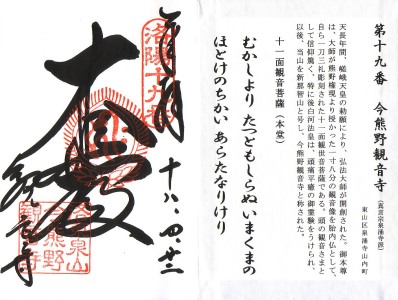 奉拝
十八、四、廿二
洛陽十九番
大悲殿
観音寺
泉山
今熊野
観音寺
第十九番　今熊野観音寺（真言宗泉涌寺派）
東山区泉涌寺山内町
天長年間、嵯峨天皇の勅願により、弘法大師が開創された。御本尊
は、大師が熊野権現より授かった一寸八分の観音像を胎内仏として、
自ら一刀三礼彫刻された十一面観世音菩薩である。頭の観音さまと
して信仰篤く、特に後白河法皇は、頭痛平癒の御霊験をうけられ、
以後、当山を新那智山と号し、今熊野観音寺と称された。
十一面観音菩薩（本堂）
むかしより　たつともしらぬ　いまくまの
ほとけのちかい　あらたなりけり